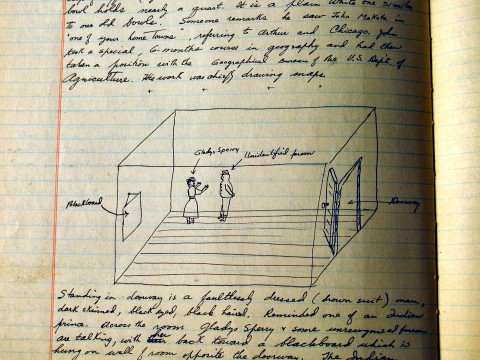 bowl holds nearly a quart. It is a plain white one similar
to our old bowls. Someone remarks he saw John McKota in
"one of your home towns", referring to Arthur and Chicago. John
took a special, 6-months course in geography and had then
taken a position with the Geographical Bureau of the U.S. Dept. of
Agriculture. His work was chiefly drawing maps.
Gladys Sperry
Unidentified person
Blackboard
Doorway
Standing in doorway is a faultlessly dressed (brown suit) man,
dark skinned, black eyed, black haired. Reminded one of an Indian
prince. Across the room Gladys Sperry & some unrecognized person
are talking, with her back toward a blackboard which is
hung on wall of room opposite the doorway. The Indian